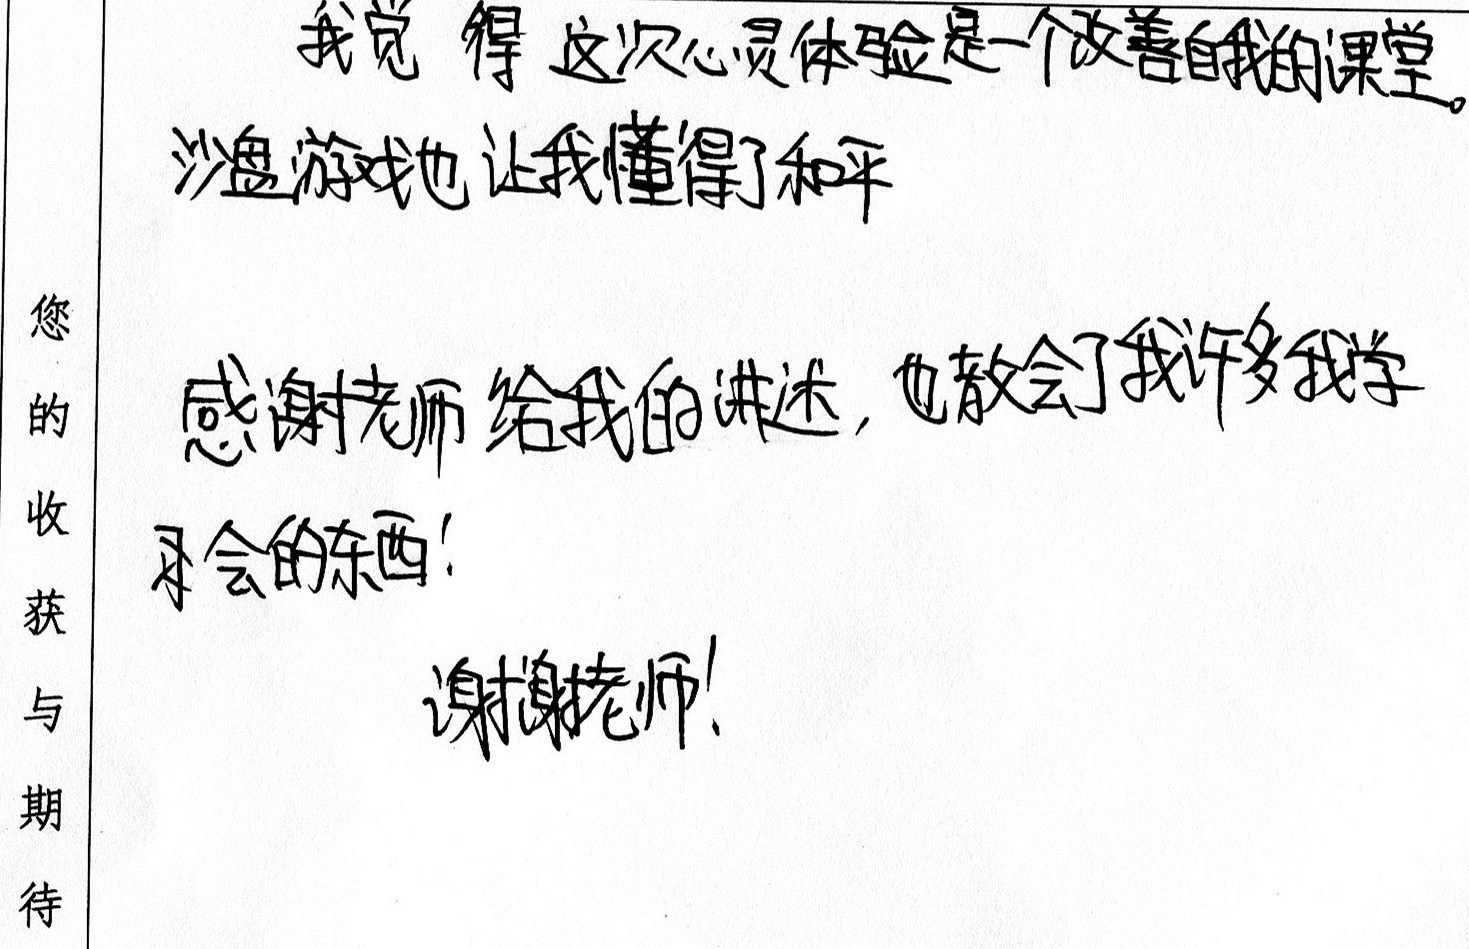 您的收获与期待
我觉得这次心灵体验是一个改善自我的课堂。
沙盘游戏也让我懂得了和平
感谢老师给我的讲述,也教会了我许多我学
会的东西!
谢谢老师!